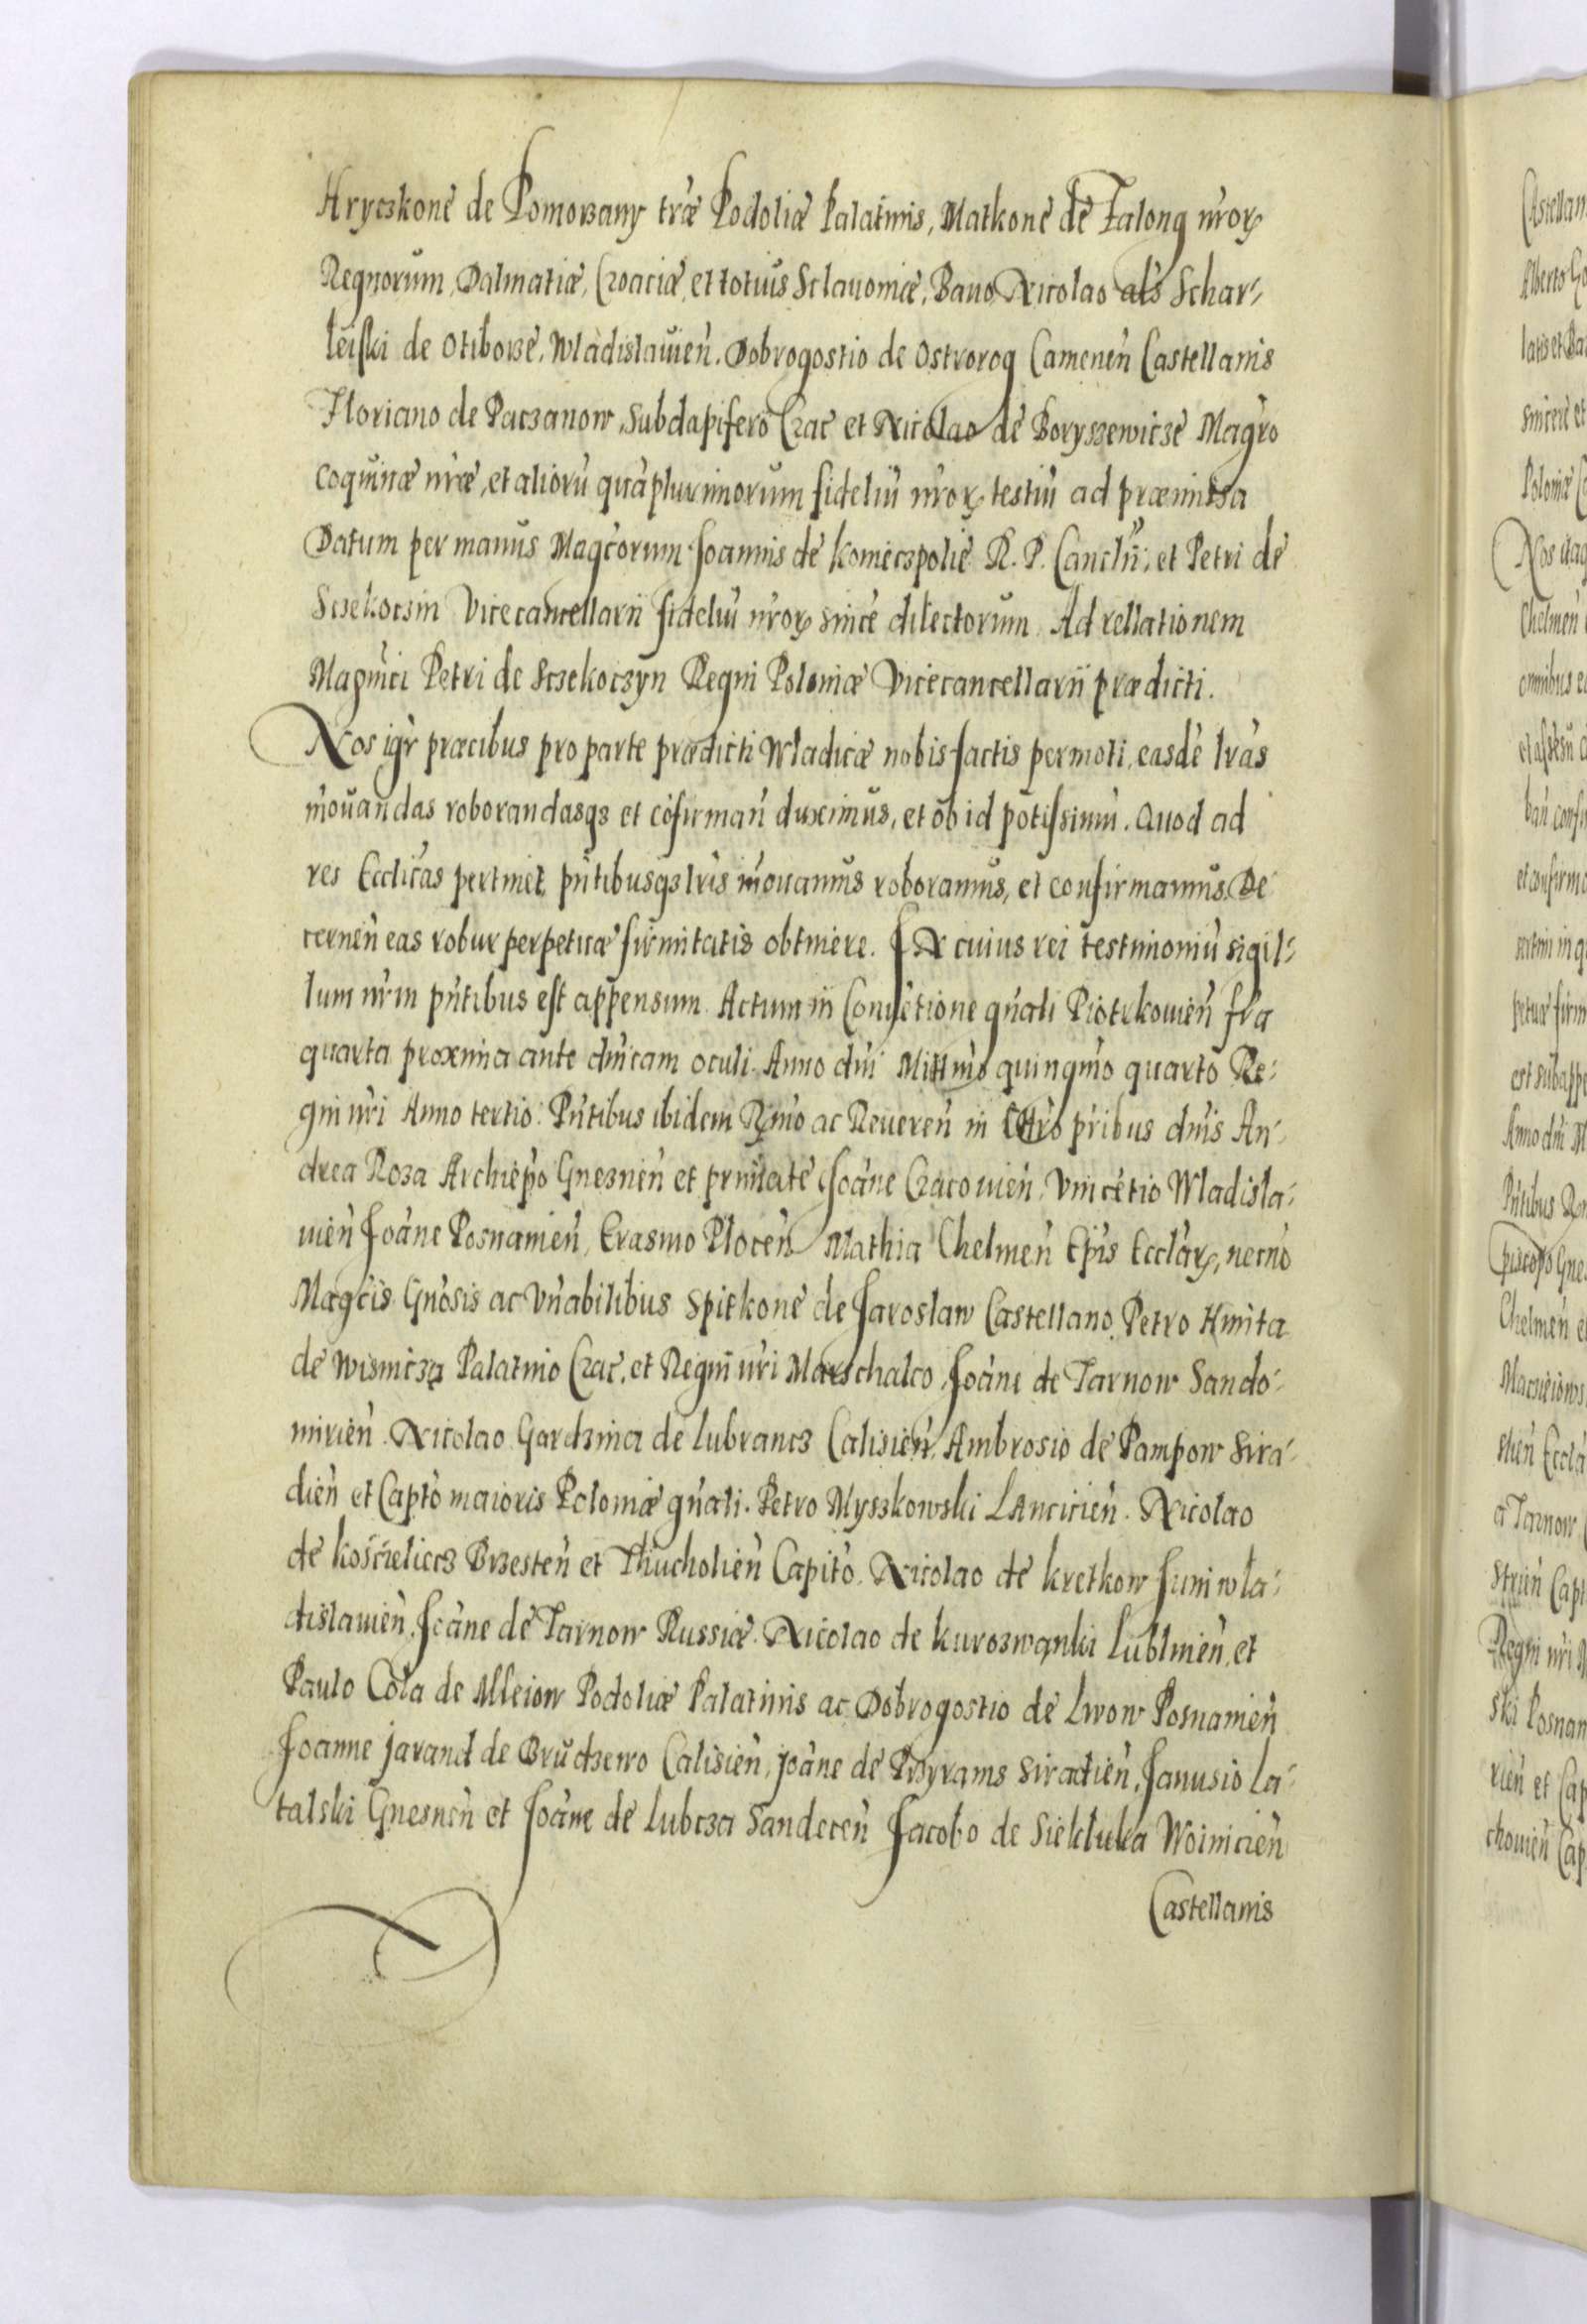 Hryczkone de Pomorzany træ Podoliæ Palatinis, Matkone de Talong nror
Regnorum, Dalmatiæ, Croaciæ, et totius Sclauoniæ, Bano Nicolao als Schar-
leiski de Otiborze, Wladislauien. Dobrogostio de Ostrorog Camenen Castellanis
Floriano de Paczanow, Subdapifero Crac et Nicolao de Boryszewicze Magro
coquinæ nræ, et alioru quapluximorum fideliu nror testiu ad præmissa
Datum per manus Magcorum Joannis de Komeczpolie R. P. Canclrii, et Petri de
Sczekoczin Vicecancellarii fideliu nror since dilectorum Ad rellationem
Magnici Petri de Sczekoczyn Regni Poloniæ Vicecancellarii prædicti.
Nos igr præcibus pro parte prædicti Wladicæ nobis factis permoti, easde lras
inouandas roborandasqz et cofirman duximus, et ob id potissimu. Quod ad
res Ecclicas pertinet, pntibusqz lris inouamus roboramus, et confirmamus. De
cernen eas robur perpetuæ firmitatis obtinere. IN cuius rei testimoniu sigil-
lum nrm pntibus est appensum. Actum in Conuetione gnali Piotrkowien fra
quarta proxima ante dnicam oculi. Anno dni Millmo quingmo quarto Re-
gni nri Anno tertio. Pntibus ibidem Rmo ac Reueren in Chro pribus dnis An-
drea Roza Archiepo Gneznen et primate, Joane Cracouien, Vincetio Wladisla-
uien Joane Posnanien, Erasmo Plocen Mathia Chelmen Epis Ecclar, necno
Magcis Gnosis ac Vnabilibus Spitkone de Jaroslaw Castellano, Petro Kmita
de Wisnicza Palatino Crac, et Regni nri Marschalco, Joane de Tarnow Sando-
mirien. Nicolao Gardzina de Lubrancz Calisien, Ambrosio de Pampow Sira-
dien et Capto maioris Poloniæ gnali. Petro Myszkowski Lancicien. Nicolao
de Koscielicz Brzesten et Thucholien Capito. Nicolao de Kretkow Juniwla-
dislauien, Joane de Tarnow Russiæ. Nicolao de Kurozwanki Lublinien, et
Paulo Cola de Alleiow Podoliæ Palatinis ac Dobrogostio de Lwow Posnanien
Joanne Jarand de Brudzewo Calisien, Joane de Przyrams Siradien, Janusio La-
talski Gnesnen et Joane de Lubcza Sandecen Jacobo de Siekluka Woinicien
Castellanis